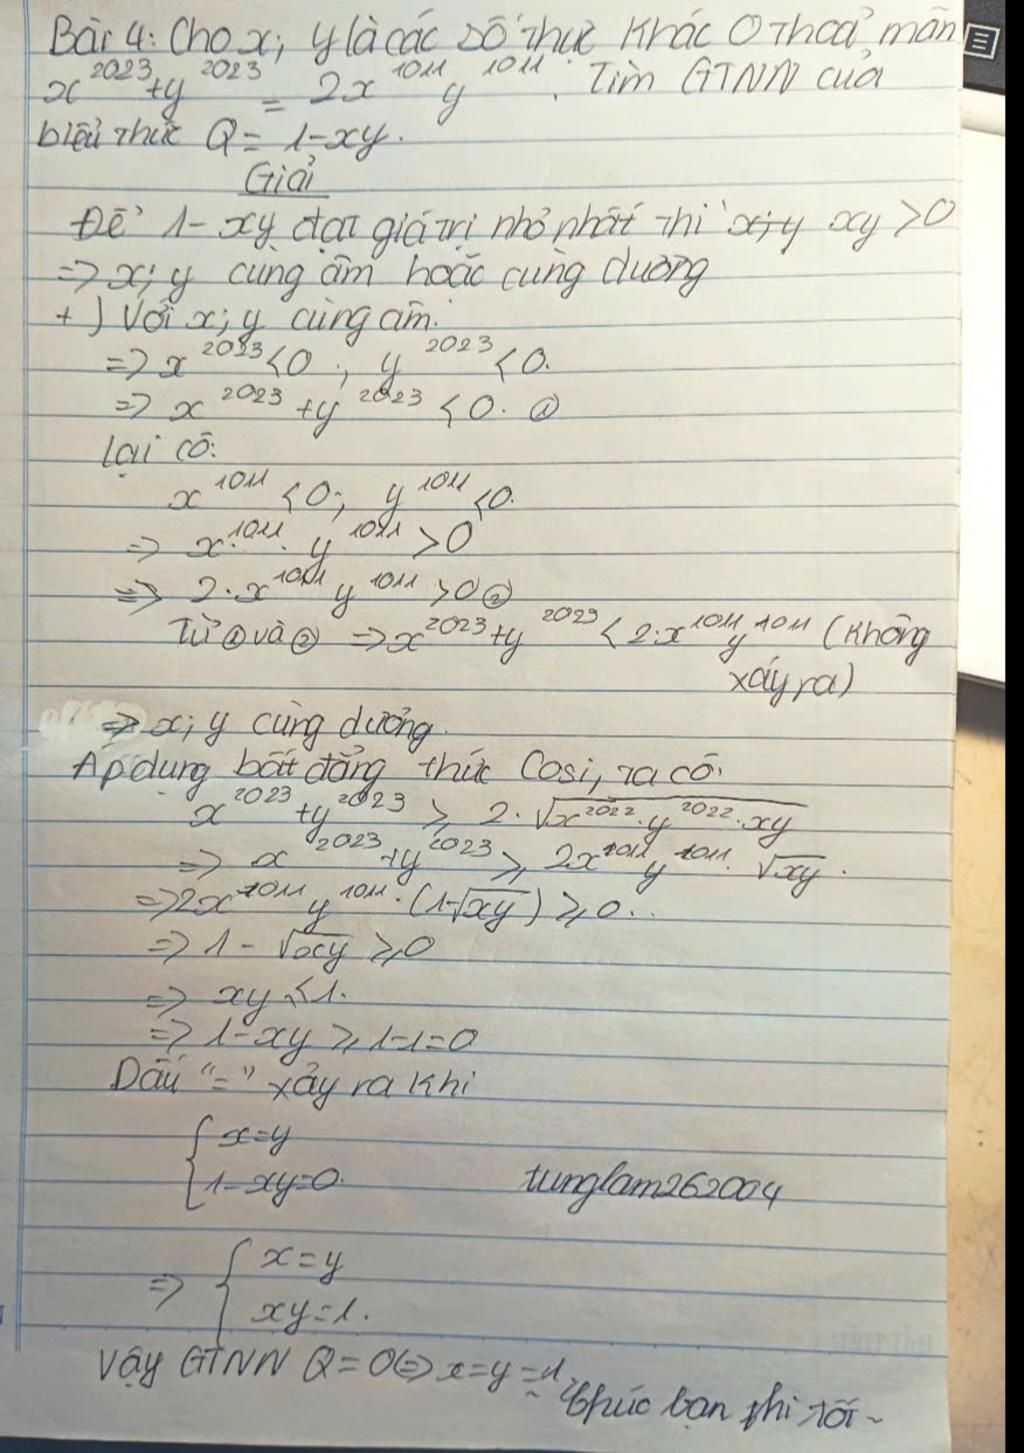 Bài 4: Cho x; y là các số thực khác 0 thoả mãn
x^2023 + y^2023 = 2x^1011 y^1011. Tìm GTNN của
biểu thức Q = 1-xy.
Giải
Để 1-xy đạt giá trị nhỏ nhất thì x;y xy > 0
=> x; y cùng âm hoặc cùng dương
+) Với x; y cùng âm.
=> x^2023 < 0; y^2023 < 0.
=> x^2023 + y^2023 < 0. ①
Lại có:
x^1011 < 0; y^1011 < 0.
=> x^1011 . y^1011 > 0
=> 2.x^1011 y^1011 > 0 ②
Từ ① và ② => x^2023 + y^2023 < 2.x^1011 y^1011 (không
xảy ra)
=> x; y cùng dương.
Áp dụng bất đẳng thức Cosi, ta có:
x^2023 + y^2023 ≥ 2.√(x^2022 . y^2022 . xy)
=> x^2023 + y^2023 ≥ 2x^1011 y^1011 . √(xy).
=> 2x^1011 y^1011 . (1-√(xy)) ≥ 0..
=> 1 - √(xy) ≥ 0
=> xy ≤ 1.
=> 1-xy ≥ 1-1 = 0
Dấu "=" xảy ra khi
{ x=y
1-xy=0.
tunglam262004
=> { x = y
xy = 1.
Vậy GTNN Q = 0 <=> x = y = 1.
Chúc bạn thi tốt ~